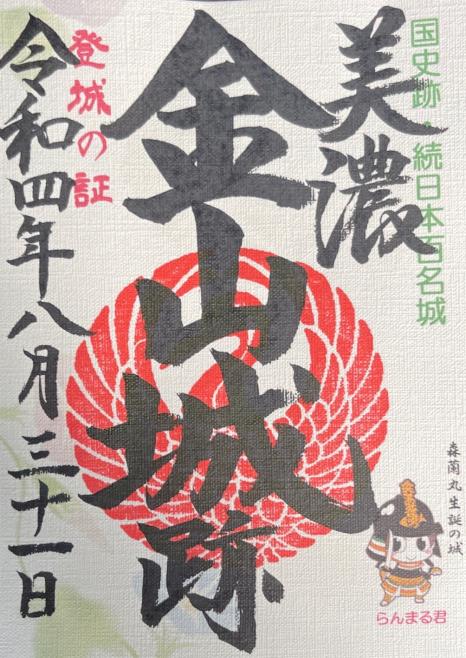 国史跡・続日本百名城
美濃
金山城跡
登城の証
令和四年八月三十一日
森蘭丸生誕の城
らんまる君